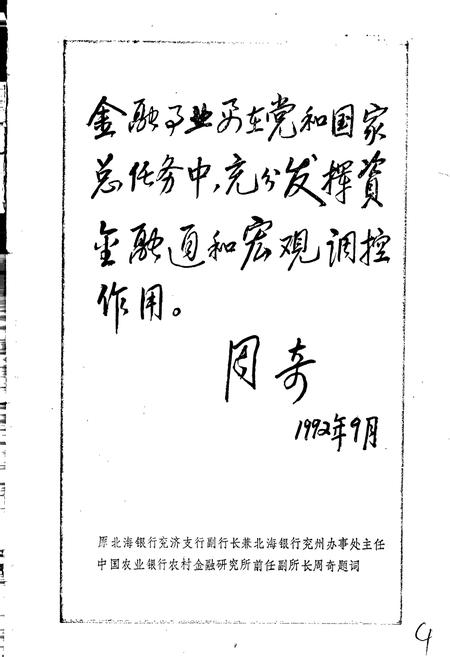 金融事业要在党和国家
总任务中，充分发挥资
金融通和宏观调控
作用。
周奇
1992年9月
原北海银行兖济支行副行长兼北海银行兖州办事处主任
中国农业银行农村金融研究所前任副所长周奇题词
4